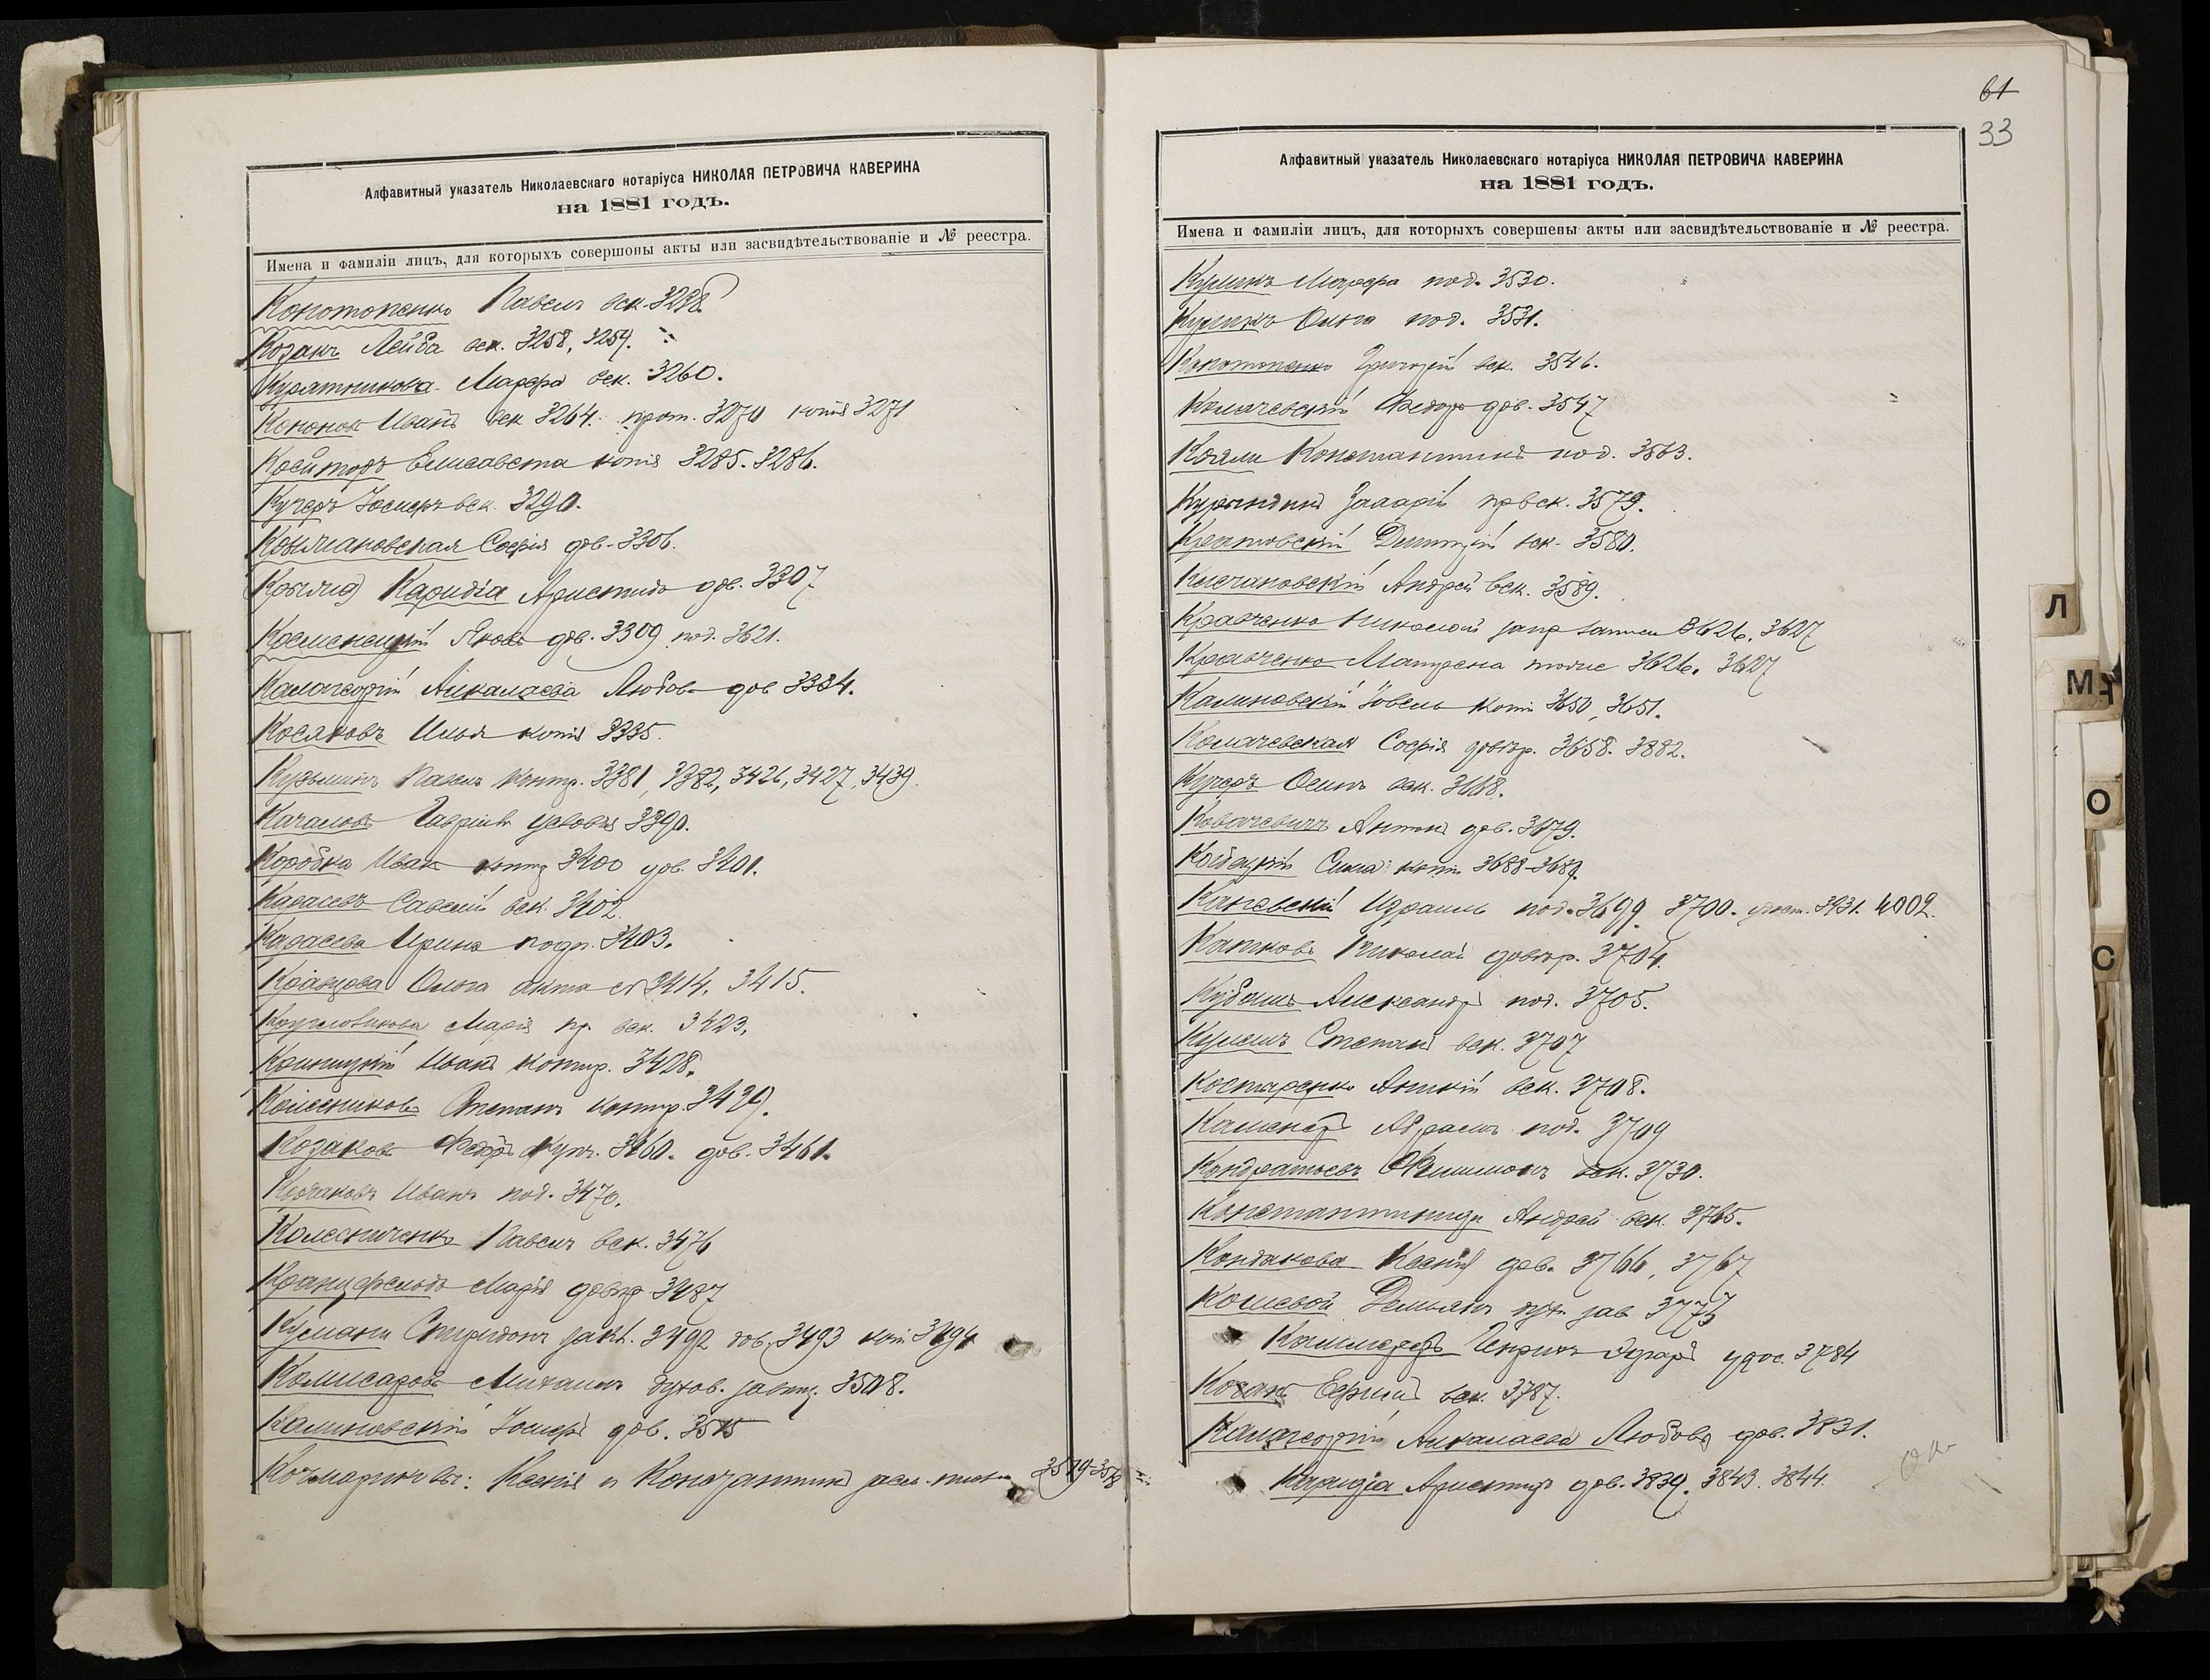 Алфавитный указатель Николаевскаго нотаріуса НИКОЛАЯ ПЕТРОВИЧА КАВЕРИНА
на 1881 годъ.
Имена и фамиліи лицъ, для которыхъ совершоны акты или засвидѣтельствованіе и № реестра.
Конотопенко Павелъ век. 3238.
Козакъ Лейба век. 3258, 3259.
Курятникова Марфа век. 3260.
Кононов Иванъ век 3264. прот. 3270 копія 3271
Крейторъ Елисавета копія 3285. 3286.
Кучеръ Іосифъ век. 3290.
Софія дов. 3306.
Каридіа Аристидъ дов. 3307
Яковъ дов. 3309 под. 3621.
Калагеоргій Анкалаева Любовь дов 3334.
Косяковъ Илья копія 3335.
Кузьминъ Павелъ контр. 3381, 3382, 3426, 3427, 3439.
Качаловъ Гавріилъ условія 3390.
Коробка Иван контр 3400 дов. 3401.
Карасевъ Савелій век. 3402.
Карасева Ирина подп. 3403.
Кравцова Ольга акта с 3414. 3415.
Марія пр. век. 3423.
Криницкій Иванъ контр. 3428.
Колесниковъ Степанъ контр. 3439.
Козаковъ Федоръ купч. 3460. дов. 3461.
Иванъ под. 3470.
Колесниченко Павелъ век. 3476
Кранцфельдъ Марія довѣр 3487
Спиридонъ 3492 дов. 3493 коп 3494
Комисаровъ Михаилъ духов. завѣщ. 3508.
Калиновскій Іосифъ дов. 3515
Ксенія и Константинъ 3519-3578
61
33
Алфавитный указатель Николаевскаго нотаріуса НИКОЛАЯ ПЕТРОВИЧА КАВЕРИНА
на 1881 годъ.
Имена и фамиліи лицъ, для которыхъ совершены акты или засвидѣтельствованіе и № реестра.
Марфа под. 3530.
Ольга под. 3531.
Конотопенко Григорій век. 3546.
Комачевскій Федоръ дов. 3547
Константинъ под. 3563.
пр век. 3579.
Дмитрій век. 3580.
Андрей век. 3589.
Кравченко Николай 3626. 3627
Кравченко Матрена тоже 3626. 3627
Калиновскій Іовель копія 3650, 3651.
Комачевская Софія довѣр. 3658. 3882.
Кучеръ Осипъ век. 3668.
Ковачевичъ Антонъ дов. 3679.
копія 3688-3689.
Каневскій Израиль под. 3699 3700. 3931. 4002.
Катковъ Николай довѣр. 3704.
Александръ под. 3705.
Степанъ век. 3707
Костаренко век. 3708.
Абрамъ под. 3709
Кондратьевъ Филимонъ век. 3730.
Константиниди Андрей век. 3765.
Кондакова Ксенія дов. 3766, 3767
Кошевой Демьянъ дух. зав 3773
Генрихъ Эдуардъ удос. 3784
Коганъ Ефимъ век. 3787.
Калагеоргій Анкалаева Любовь дов. 3831.
Каридіа Аристидъ дов. 3839. 3843. 3844.
Л
М
О
С